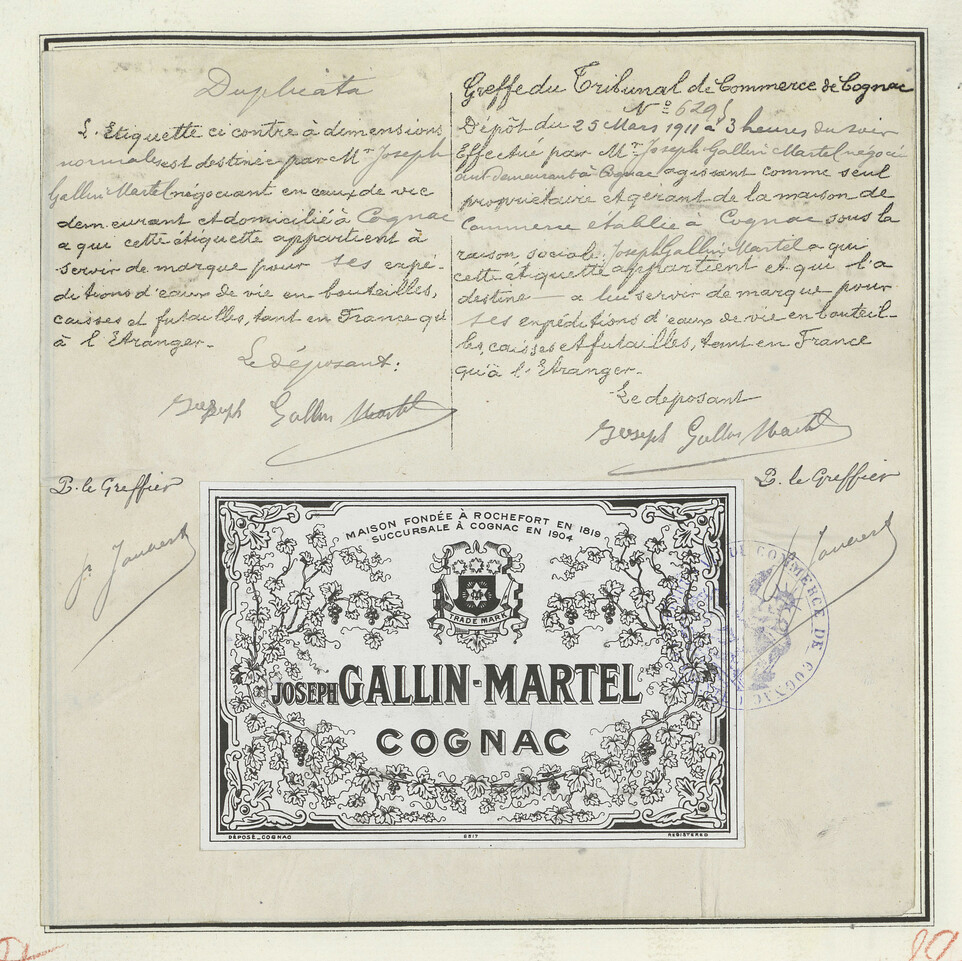 Duplicata
L'Etiquette ci contre à dimensions
normales est destinée par Mr Joseph
Gallin-Martel négociant en eaux de vie
demeurant et domicilié à Cognac
a qui cette étiquette appartient à
servir de marque pour ses expé-
ditions d'eaux de vie en bouteilles,
caisses et futailles, tant en France qu'
à l'Etranger.
Le déposant:
Joseph Gallin Martel
P. le Greffier
Greffe du Tribunal de Commerce de Cognac
N° 629
Dépôt du 25 Mars 1911 à 3 heures du soir
Effectué par Mr Joseph Gallin Martel négoci
ant demeurant à Cognac agissant comme seul
propriétaire et gérant de la maison de
Commerce établie à Cognac sous la
raison sociale Joseph Gallin Martel a qui
cette étiquette appartient et qui l'a
destine a lui servir de marque pour
ses expéditions d'eaux de vie en bouteil-
les, caisses et futailles, tant en France
qu'à l'Etranger.
Le deposant
Joseph Gallin Martel
P. le Greffier
MAISON FONDÉE À ROCHEFORT EN 1819
SUCCURSALE À COGNAC EN 1904
TRADE MARK
JOSEPH GALLIN-MARTEL
COGNAC
DÉPOSÉ_COGNAC
REGISTERED
COMMERCE DE COGNAC